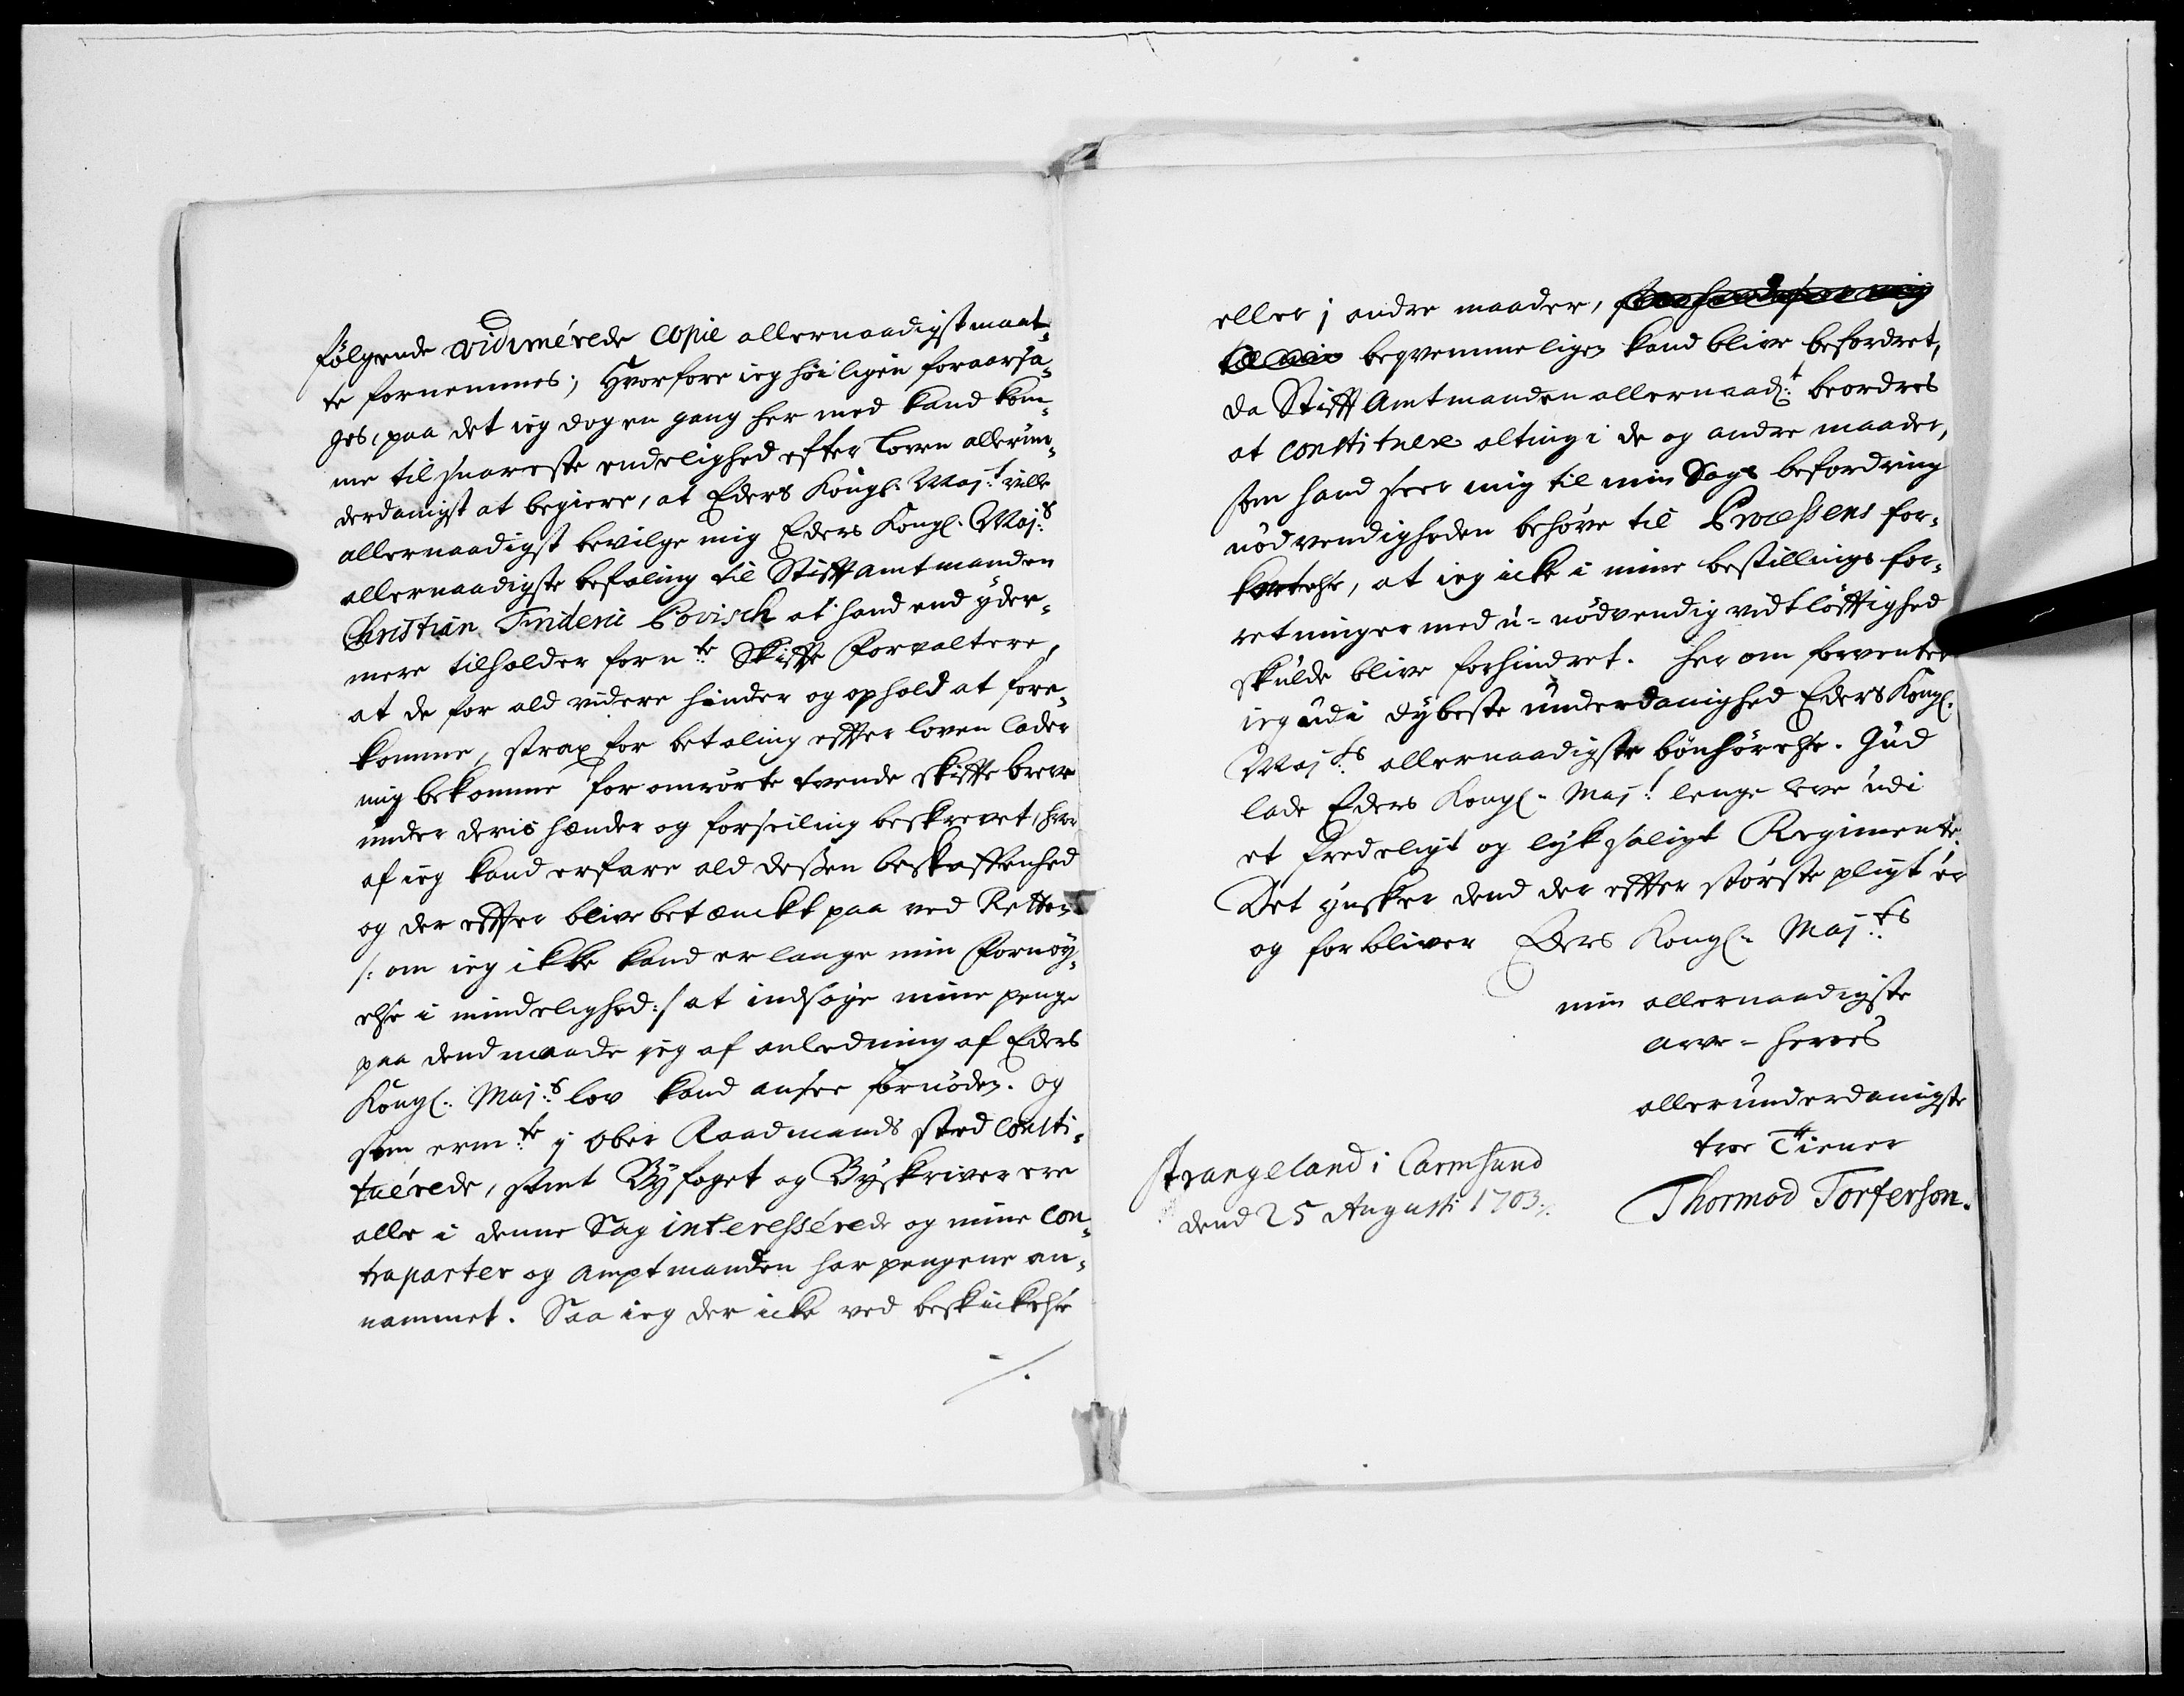 følgende vidimérede copie allernaadigst maat-
te fornemmes; Hvorfore ieg høiligen foraarsa-
ges, paa det ieg dog en gang her med kand kom-
me til snareste endelighed efter loven allerun-
derdanigst at begiere, at Eders Kongl: Maj:t ville
allernaadigst bevilge mig Eders Kongl. Maj:s
allernaadigste befaling til Stiftamtmanden
Christian Frideric Povisch at hand end yder-
mere tilholder forn:te Skifte Forvaltere,
at de for ald videre hinder og ophold at fore-
komme, strax for betaling effter loven lader
mig bekomme foromrørte tvende skifte breve
under deris hænder og forseiling beskrevet, hvor
af ieg kand erfare ald dessen beskaffenhed
og der effter blive betænckt paa ved Retten
/: om ieg ikke kand erlange min Fornøy-
else i mindelighed :/ at indsøge mine penge
paa dend maade ieg af anledning af Eders
Kongl: Maj:s lov kand ansee fornøden. og
som erm:te j Ober Raadmands sted consti-
tuérede, samt Byfoget og Byskriver ere
alle i denne Sag interessérede og mine con-
traparter og amptmanden har pengene an-
nammet. Saa ieg der icke ved beskickelse
eller j andre maader,
begvemmeligen kand blive befordret,
da Stifft Amtmanden allernaad:t beordres
at constituere alting i de og andre maader,
som hand seer mig til min Sags befordring
nødvendigheden behøve til Processens for-
kortelse, at ieg icke i mine bestillings for-
retninger med u-nødvendig vidtløfftighed
skulde blive forhindret. her om forventer
ieg udi dybeste underdanighed Eders Kongl.
Maj:ts allernaadigste bønhørelse. Gud
lade Eders Kongl: Maj:t lenge leve udi
et fredeligt og lyksaligt Regimente.
Det ynsker dend der effter største pligt er
og forbliver Eders Kongl: Maj:ts
min allernaadigste
arve-herres
allerunderdanigste
troe Tiener
Strangeland i Carmsund
dend 25 Augusti 1703
Thormod Torferson.